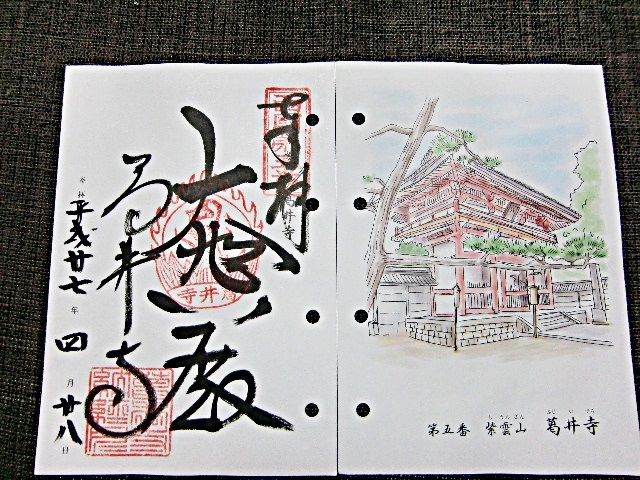 奉拝
葛井寺
大悲殿
葛井寺
葛井寺
参拝
平成廿七年四月廿八日
第五番 紫雲山 葛井寺
しうんざん ふじいでら